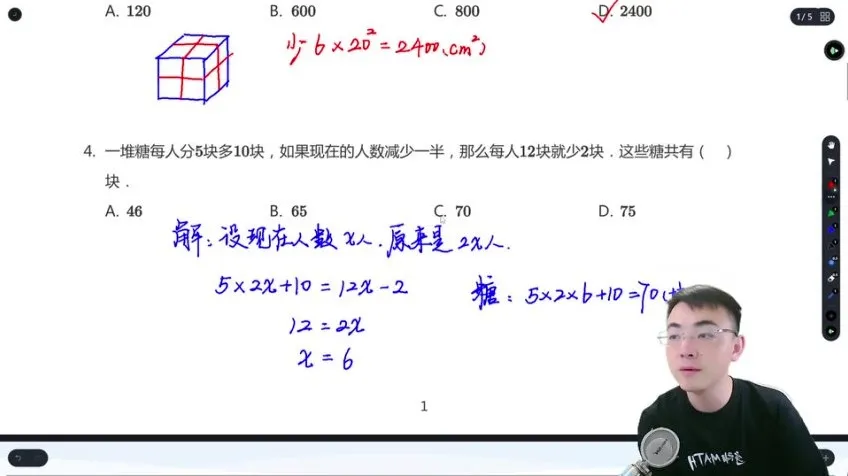 A. 120 B. 600 C. 800 D. 2400
1/5
小=6×20²=2400(cm²)
4. 一堆糖每人分5块多10块，如果现在的人数减少一半，那么每人12块就少2块．这些糖共有（ ）
块．
A. 46 B. 65 C. 70 D. 75
解：设现在人数x人．原来是2x人．
5×2x+10=12x-2
糖：5×2×6+10=70
12=2x
x=6
1